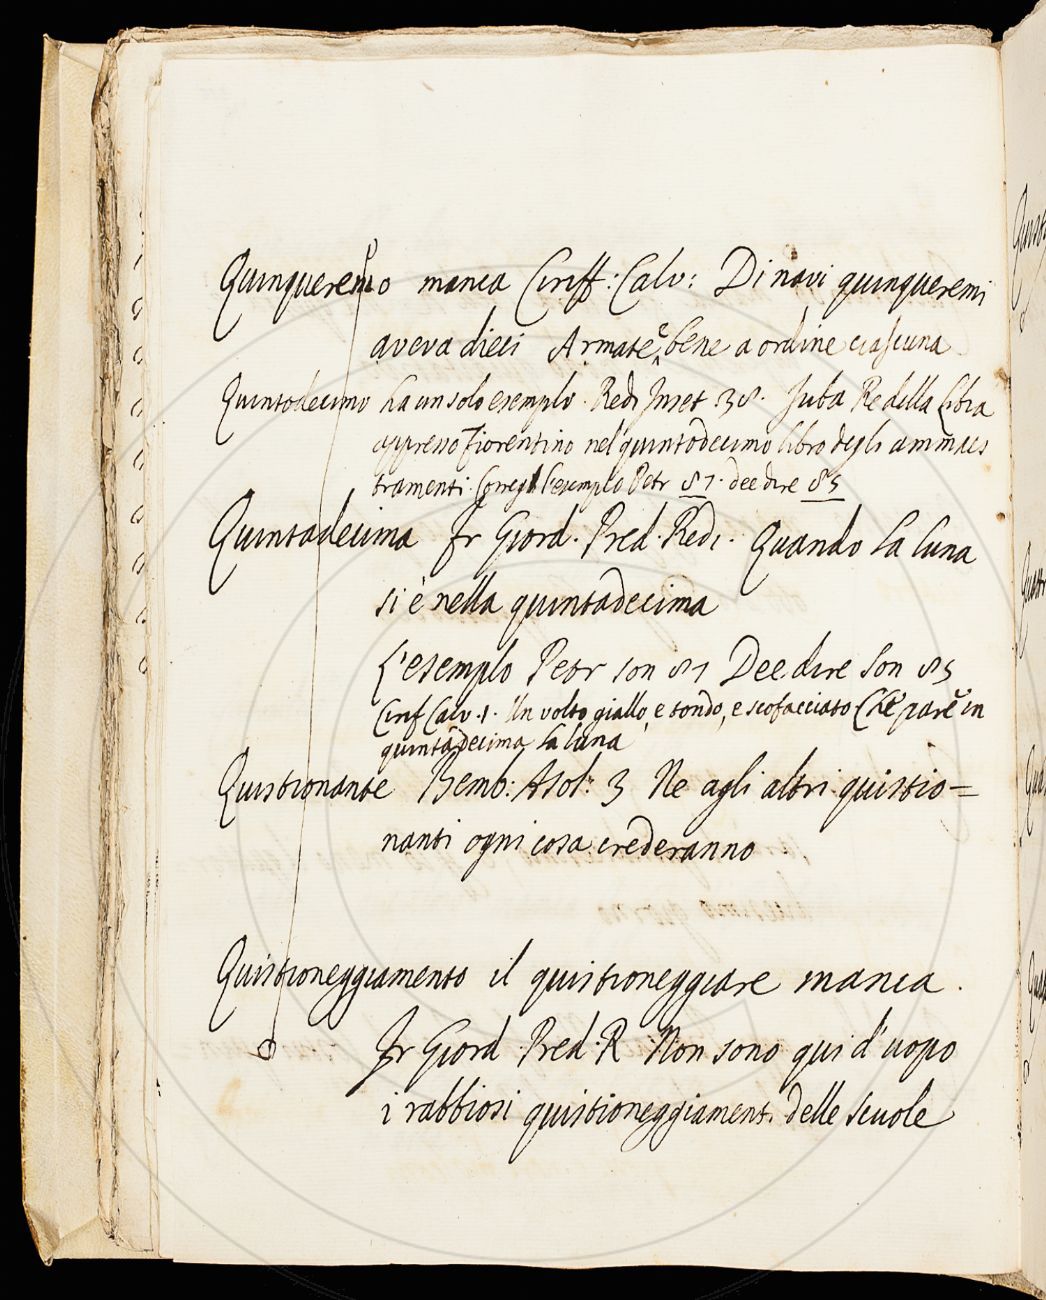 Quinqueremo manca Ciriff: Calv: Di navi quinqueremi
aveva dieci Armate, e bene a ordine ciascuna
Quintodecimo ha un solo esemplo. Redi Inset. 38. Juba Re della Libia
appresso Fiorentino nel quintodecimo libro degli ammaes
tramenti. l'esemplo Petr 87. dee dire 85
Quintadecima Fr Giord. Pred. Redi. Quando la luna
si è nella quintadecima
L'esemplo Petr son 87 Dee dire son 85
Cirif Calv. 1. Un volto giallo, e tondo, e scofacciato Che pare in
quintadecima la luna
Quistionante Bemb: Asol: 3 Ne agli altri quistio=
nanti ogni cosa crederanno
Quistioneggiamento il quistioneggiare manca.
Fr Giord. Pred. R. Non sono qui d'uopo
i rabbiosi quistioneggiamenti delle scuole